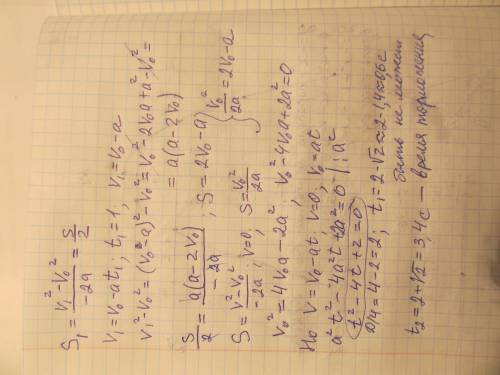 S₁ = (v₁² - v₀²)/(-2a) = S/2
v₁ = v₀ - at₁ ; t₁ = 1, v₁ = v₀ - a
v₁² - v₀² = (v₀ - a)² - v₀² = v₀² - 2v₀a + a² - v₀² =
= a(a - 2v₀)
S/2 = a(a - 2v₀)/(-2a) ; S = 2v₀ - a
S = (v² - v₀²)/(-2a) ; v = 0, S = v₀²/2a } v₀²/2a = 2v₀ - a
v₀² = 4v₀a - 2a² , v₀² - 4v₀a + 2a² = 0
Но v = v₀ - at ; v = 0, v₀ = at
a²t² - 4a²t + 2a² = 0 | : a²
t² - 4t + 2 = 0
D/4 = 4 - 2 = 2 ; t₁ = 2 - √2 ≈ 2 - 1,4 ≈ 0,6 с
быть не может
t₂ = 2 + √2 = 3,4 с — время торможения